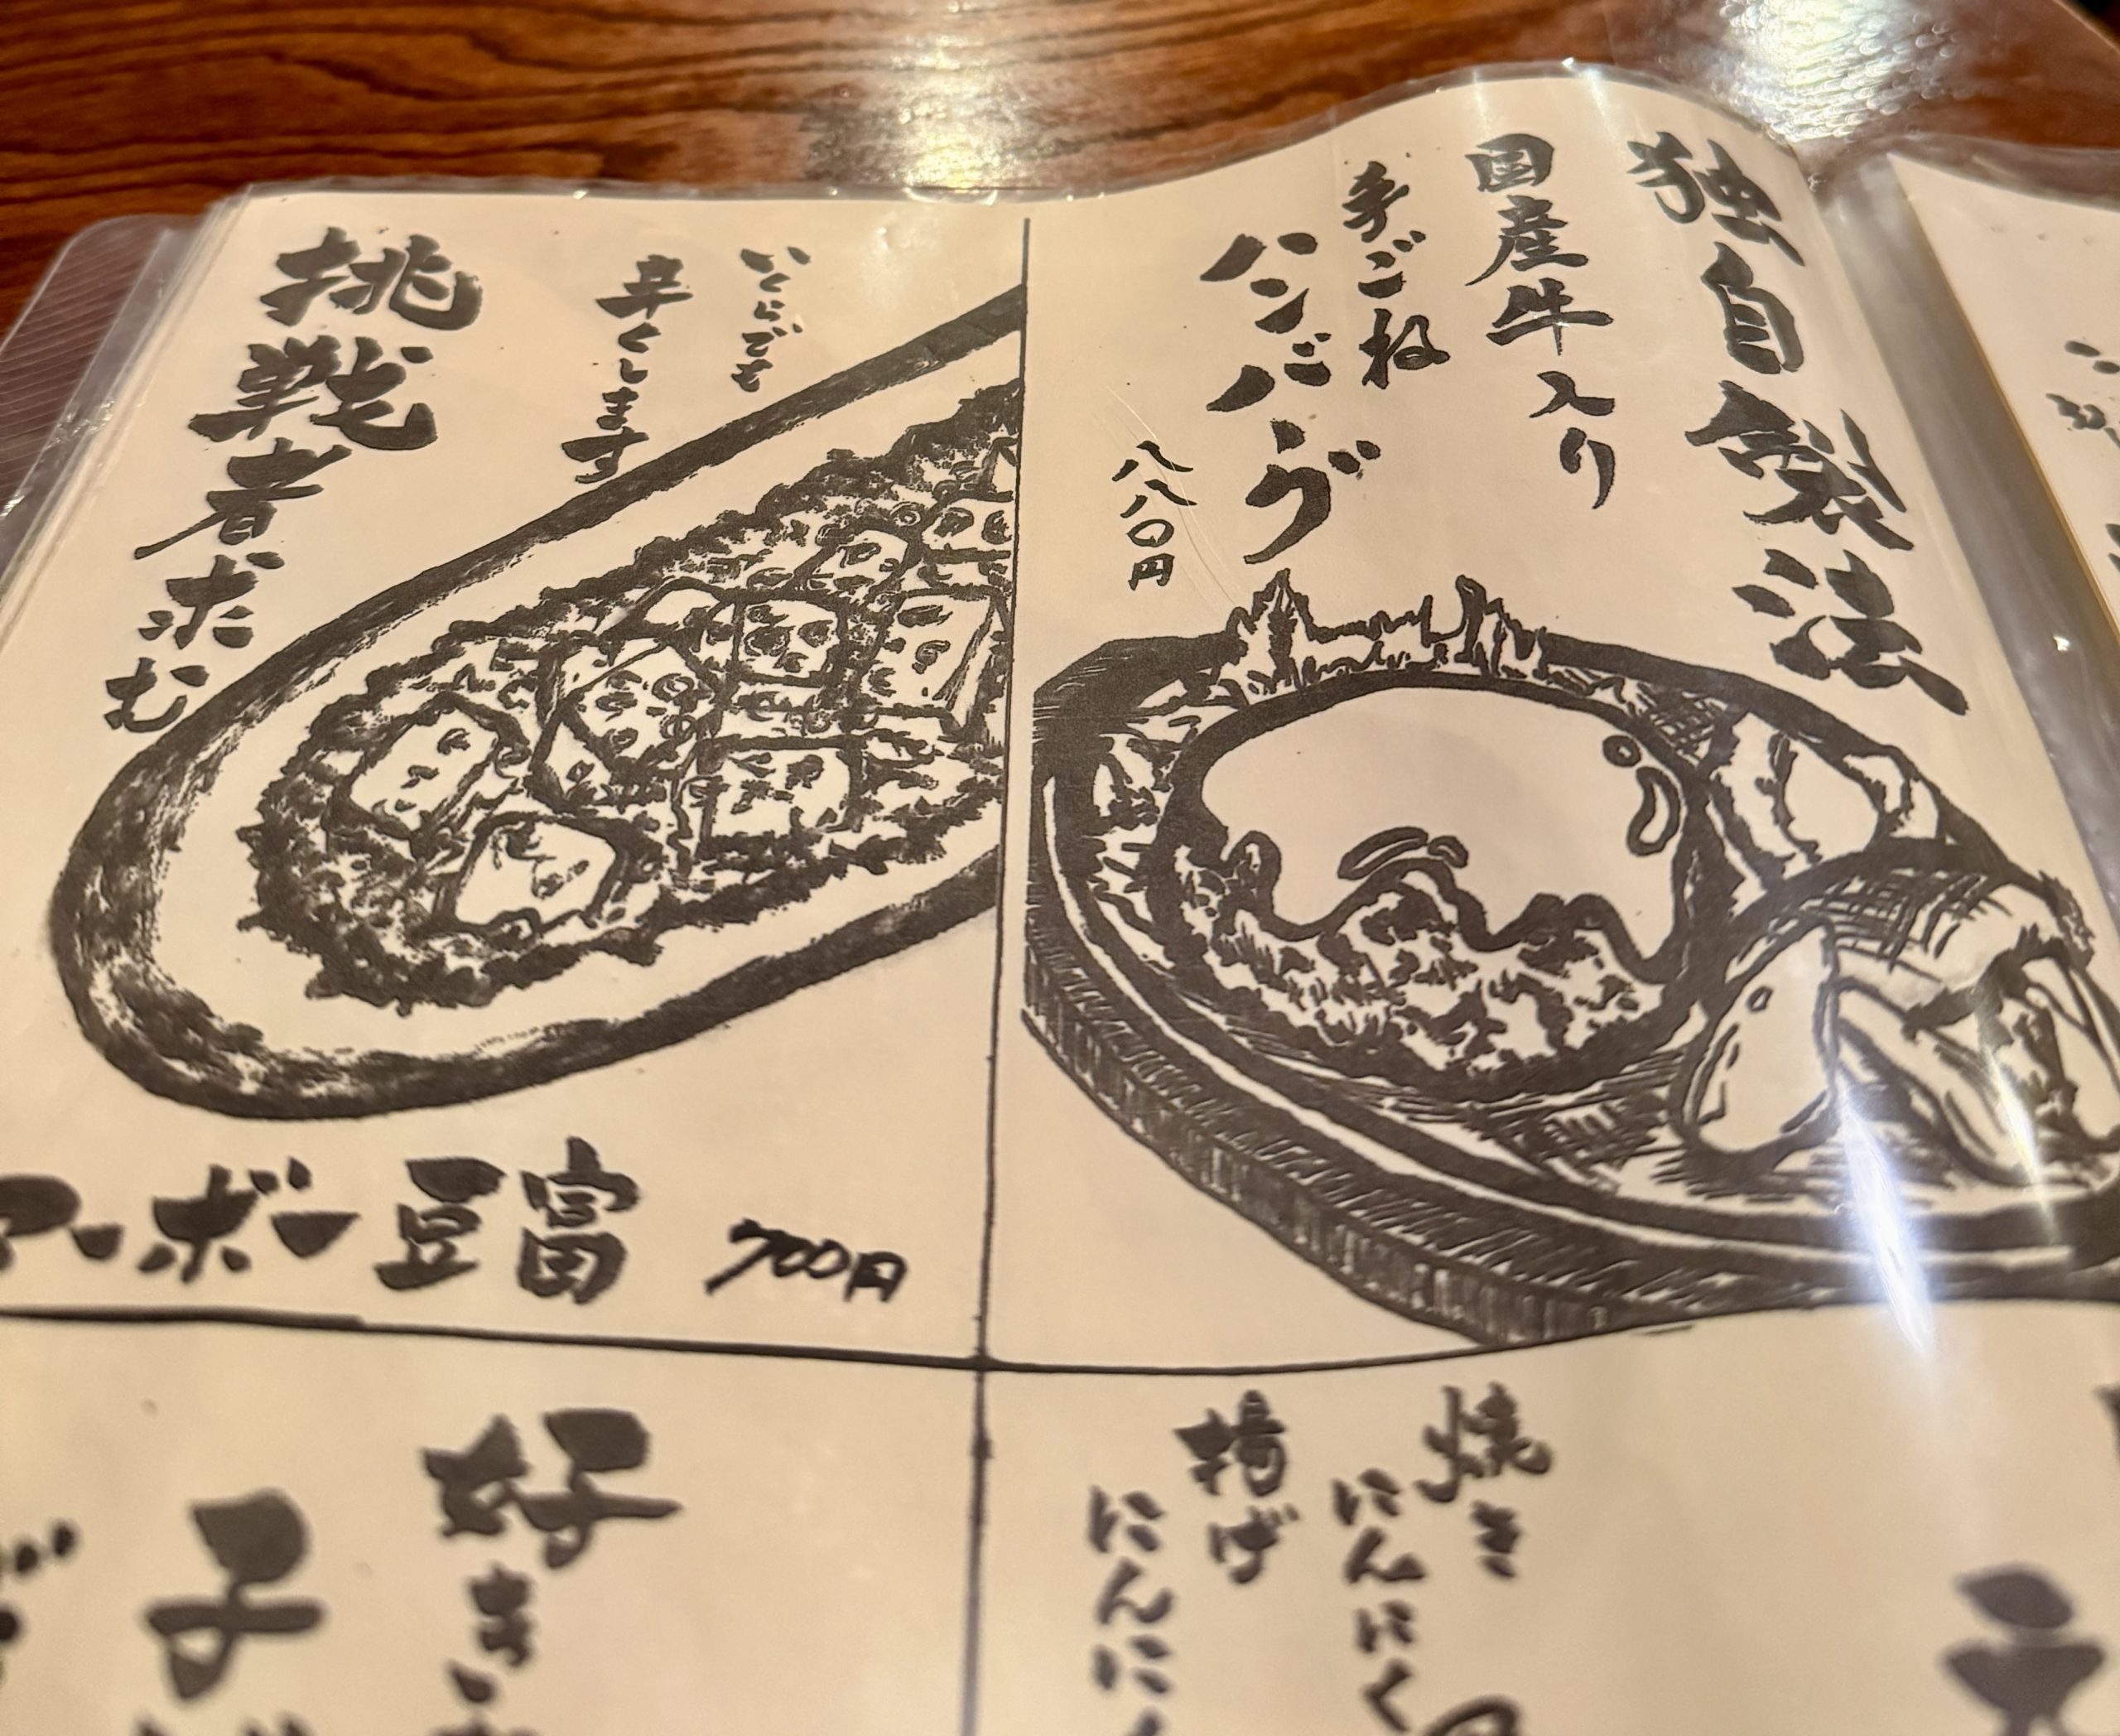 独自製法
国産牛入り
手ごね
ハンバーグ
八八〇円
いくらでも
辛くします
挑戦者求む
マーボー豆富
700円
焼き
にんにく
揚げ
にんにく
好き
子